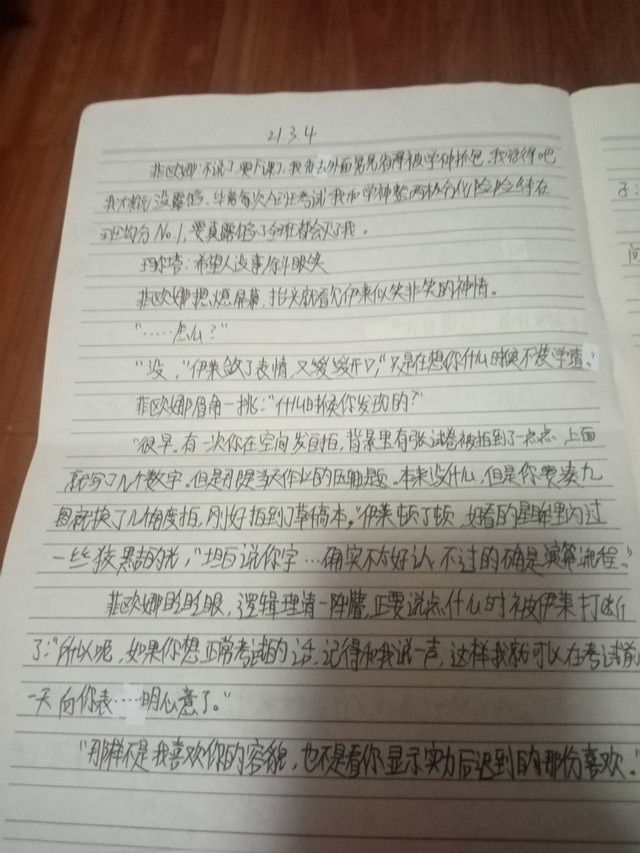 21.3.4
菲欧娜:不说了,要下课了,我
我大概没露馅。毕竟每次全班考试我和学神
班均分No.1,要真露馅了全班都会灭了我。
玛尔塔:希望人没事斜眼笑
菲欧娜想熄屏幕,抬头就看见伊莱似笑非笑的神情。
“……怎么?”
“没,”伊莱敛了表情,又缓缓开口,“只是在想你什么时候不装学渣。”
菲欧娜眉角一挑:“什么时候你发现的?”
“很早。有一次你在空间发自拍,背景里有张试卷被拍到了一点点,上面
就写了几个数字。但是那是当天作业的压轴题。本来没什么,但是你要凑九
图就换了几个角度拍,刚好拍到了草稿本。”伊莱顿了顿,好看的星眸里闪过
一些狡黠的光,“坦白说你字…确实不太好认,不过的确是演算流程。”
菲欧娜眨眨眼,逻辑理清一阵懵,正要说点什么时被伊莱打断
了:“所以呢,如果你想正常考试的话,记得和我说一声,这样我就可以在考试前
一天向你表……明心意了。”
“那样不是我喜欢你的容貌,也不是看你显示实力后迟到的那份喜欢。”
子:
问